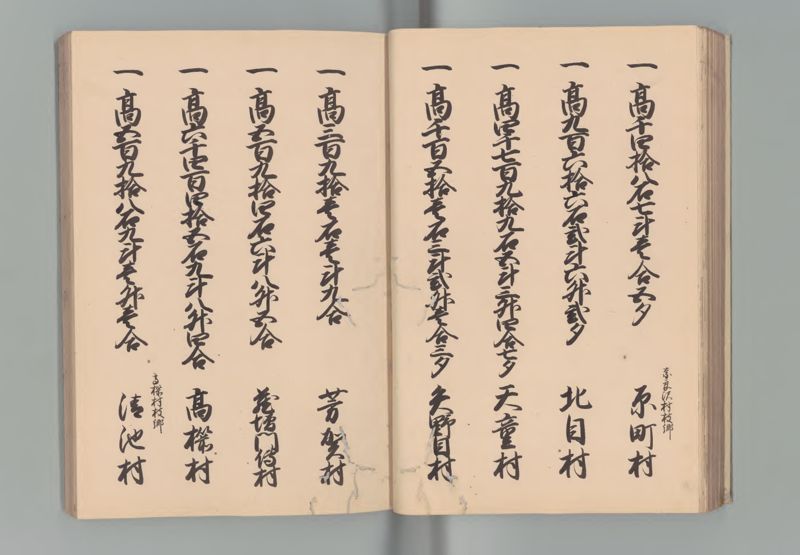 一 高千四拾八石七斗壱合五夕
奈良沢村枝郷
原町村
一 高九百六拾六石弐斗六升弐夕
北目村
一 高四千七百九拾九石五斗三升四合七夕
天童村
一 高千百五拾壱石三斗弐升壱合三夕
矢野目村
一 高三百九拾壱石壱斗九合
芳賀村
一 高五百九拾四石六斗八升五合
門得村
一 高六千七百四拾五石九斗八升四合
高楡村
一 高五百九拾八石九斗壱升壱合
高楡村枝郷
清池村